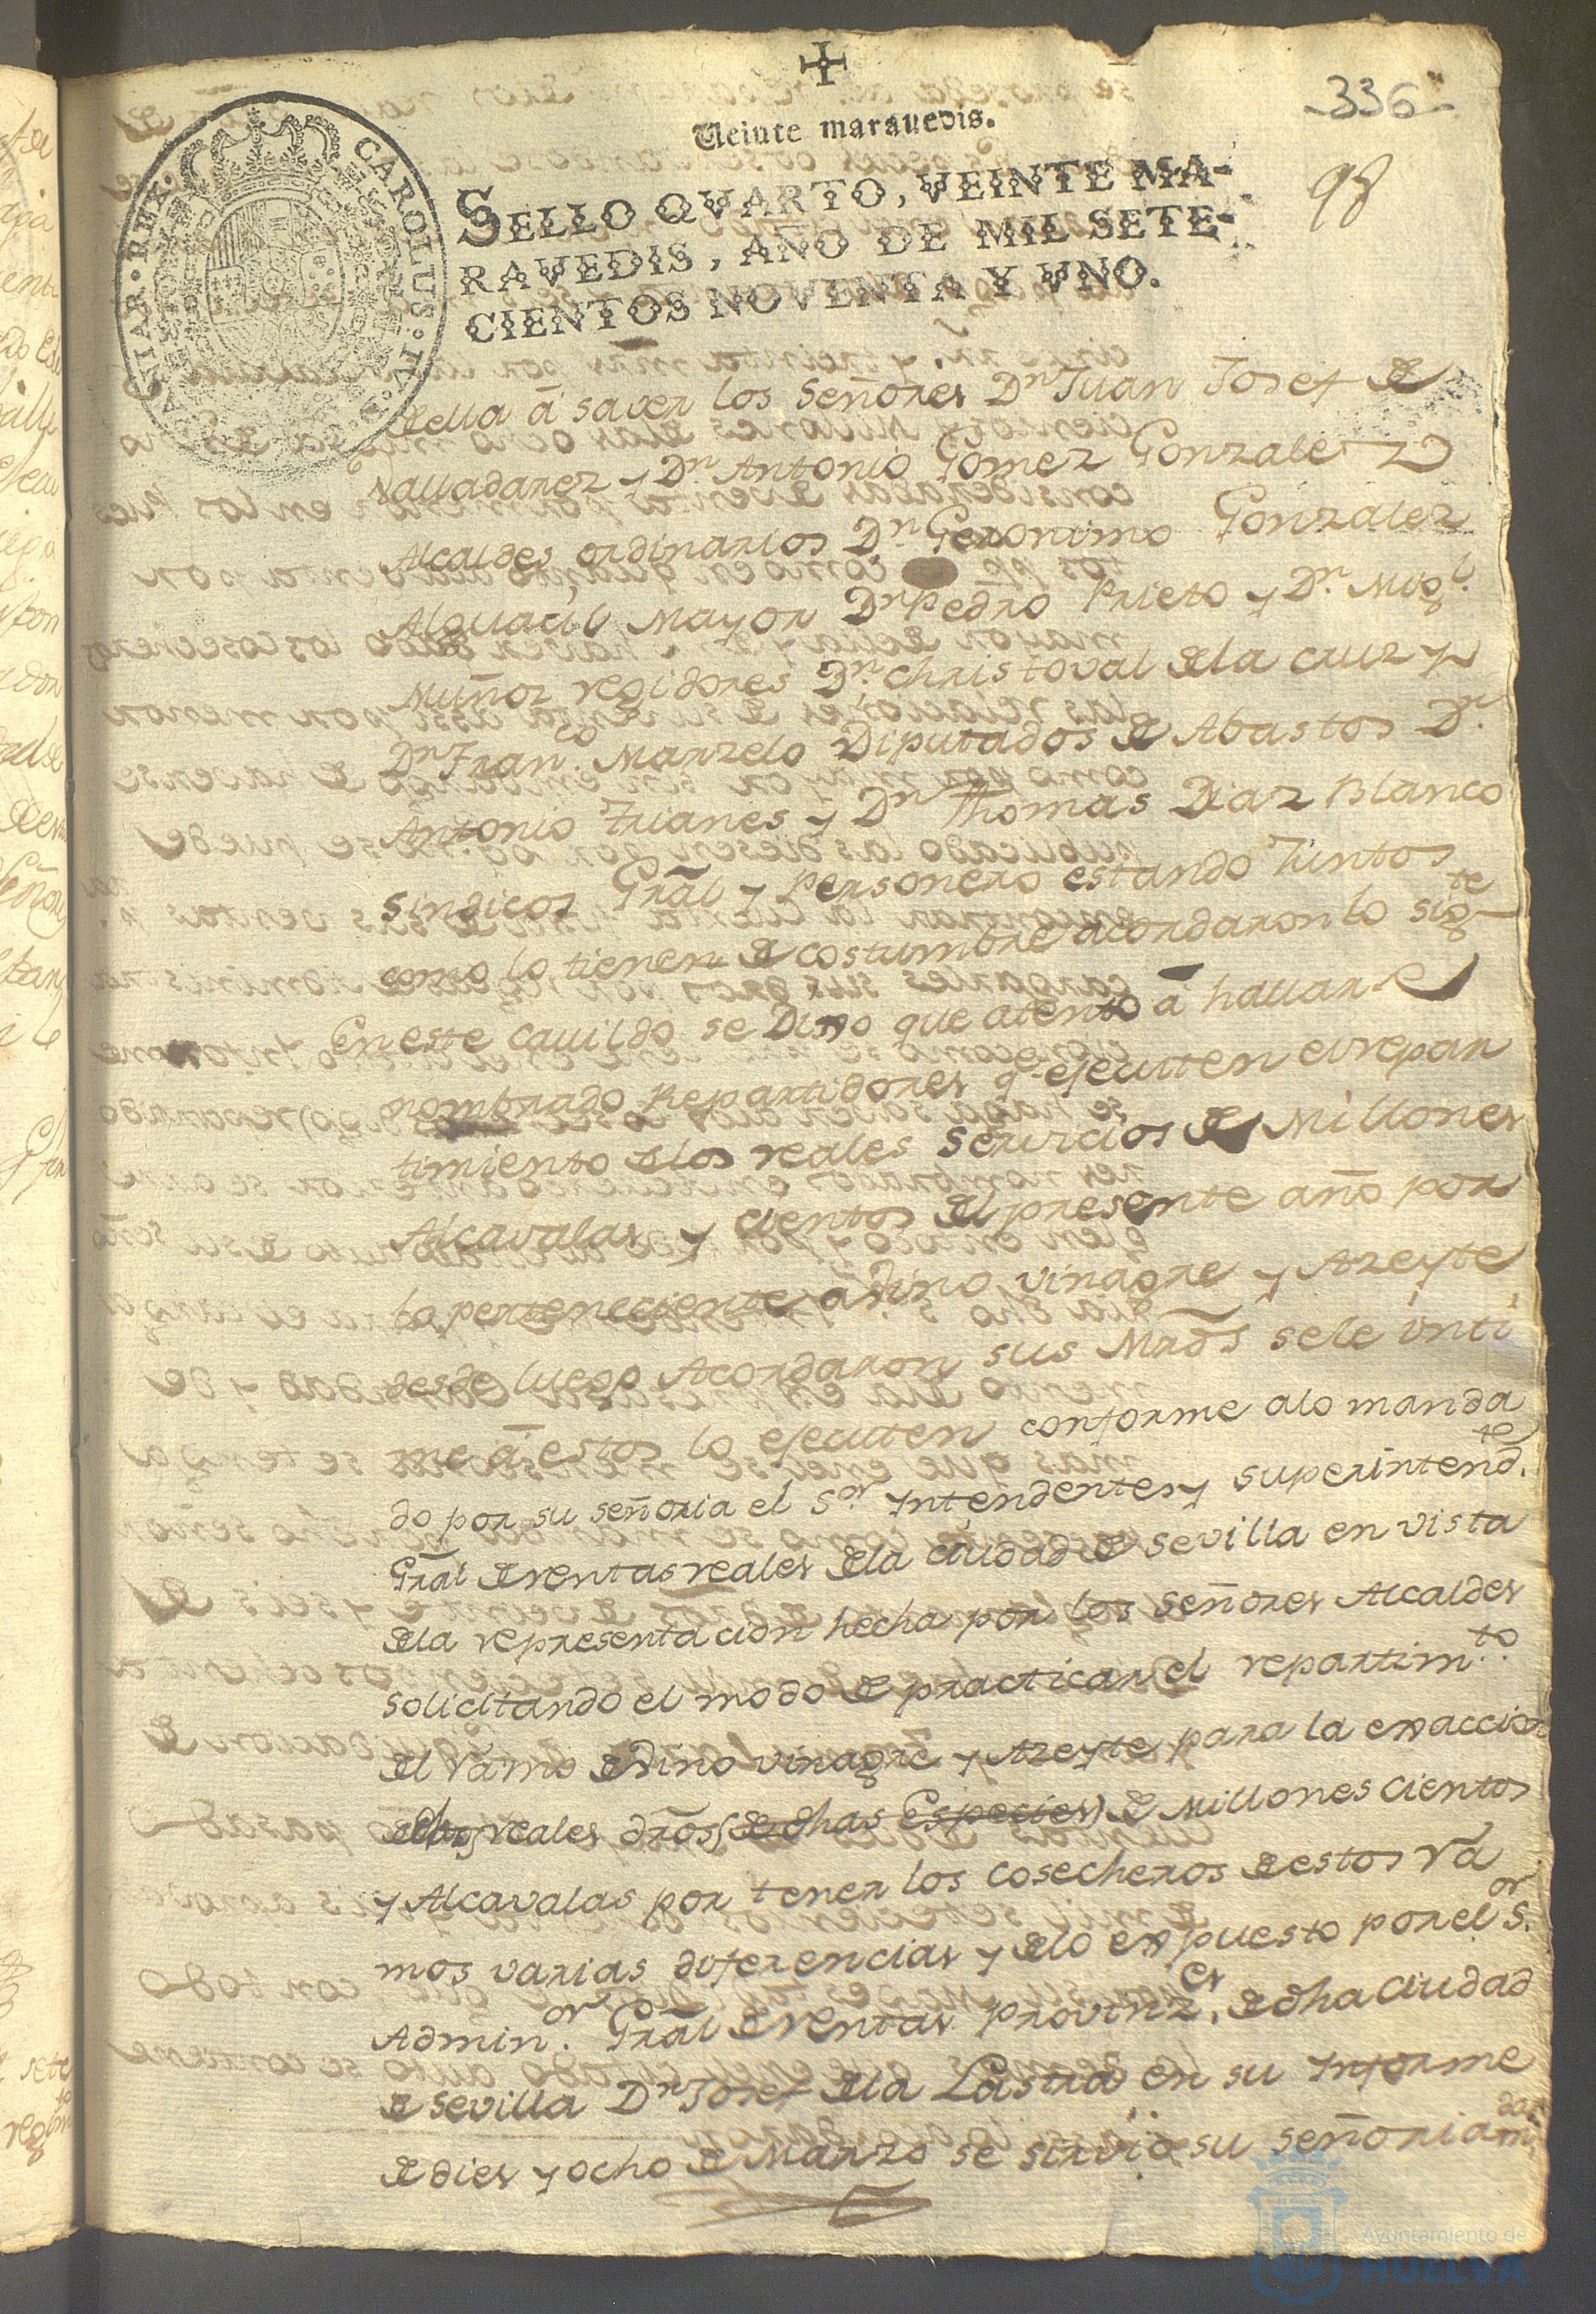 336
98
Veinte maravedis.
SELLO QVARTO, VEINTE MA-
RAVEDIS, AÑO DE MIL SETE-
CIENTOS NOVENTA Y VNO.
CAROLUS IV HISPANIAR REX
della á saver los Señores Dn Juan Josef de
Valladarez y Dn Antonio Gomez Gonzalez
Alcaldes ordinarios Dn Geronimo Gonzalez
Alguacil Mayor Dn Pedro Prieto y Dn Migl.
Muñoz regidores Dn Christoval de la Cruz y
Dn Franco. Manzelo Diputados de Abastos Dn
Antonio Trianes y Dn Thomas Diaz Blanco
Sindicos Gral y Personero estando Juntos
como lo tienen de costumbre acordaron lo sigte
En este cavildo se Dixo que atento á hallarse
nombrado Repartidores qe ejecuten el repar
timiento de los reales servicios de Millones
Alcavalas y cientos del presente año por
lo perteneciente a vino vinagre y Azeyte
desde luego Acordaron sus Mrds se le inti
me á estos lo ejecuten conforme alo manda
do por su señoria el Sor Yntendente y superintendte.
Gral de rentas reales de la ciudad de Sevilla en vista
de la representacion hecha por los señores Alcaldes
solicitando el modo de practicar el repartimto.
del Ramo de vino vinagre y Azeyte para la exaccion
delos reales dros (de dhas Especies) de Millones Cientos
y Alcavalas por tener los cosecheros de estos Ra
mos varias diferencias y de lo expuesto por el Sor.
Adminor. Gral de rentas provinzes. de dha Ciudad
de Sevilla Dn Josef de la Lastra en su Ynforme
de dies y ocho de Marzo se sirvio su señoria
Ayuntamiento de
HUELVA